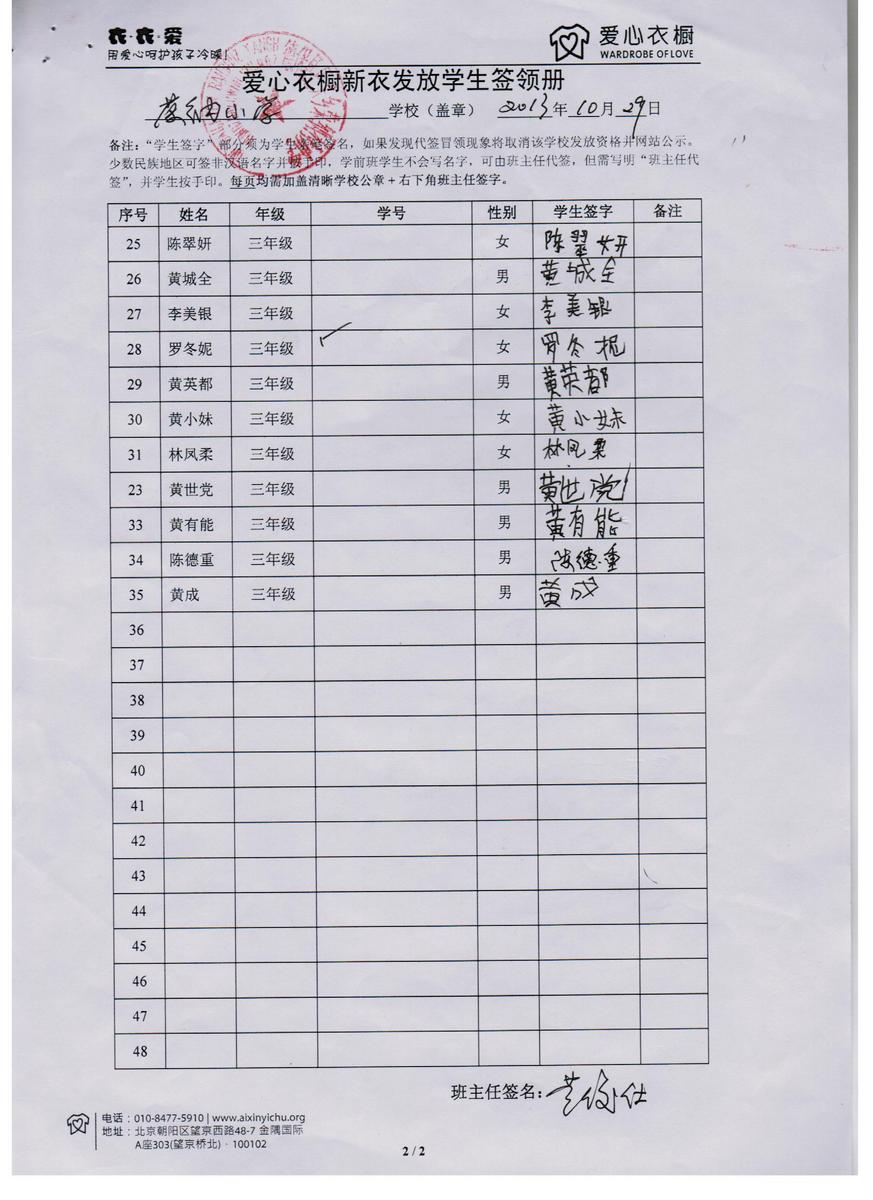 衣·衣·爱
用爱心呵护孩子冷暖!
爱心衣橱
WARDROBE OF LOVE
爱心衣橱新衣发放学生签领册
小学 学校（盖章） 2013年10月29日
备注：“学生签字”部分须为学生签名，如果发现代签冒领现象将取消该学校发放资格并网站公示。
少数民族地区可签非汉语名字并按手印，学前班学生不会写名字，可由班主任代签，但需写明“班主任代
签”，并学生按手印。每页均需加盖清晰学校公章+右下角班主任签字。
序号 姓名 年级 学号 性别 学生签字 备注
25 陈翠妍 三年级 女 陈翠妍
26 黄城全 三年级 男 黄城全
27 李美银 三年级 女 李美银
28 罗冬妮 三年级 ✓ 女 罗冬妮
29 黄英都 三年级 男 黄英都
30 黄小妹 三年级 女 黄小妹
31 林凤柔 三年级 女 林凤柔
23 黄世党 三年级 男 黄世党
33 黄有能 三年级 男 黄有能
34 陈德重 三年级 男 陈德重
35 黄成 三年级 男 黄成
36
37
38
39
40
41
42
43
44
45
46
47
48
班主任签名：
电话：010-8477-5910 | www.aixinyichu.org
地址：北京朝阳区望京西路48-7 金隅国际
A座303(望京桥北)·100102
2 / 2